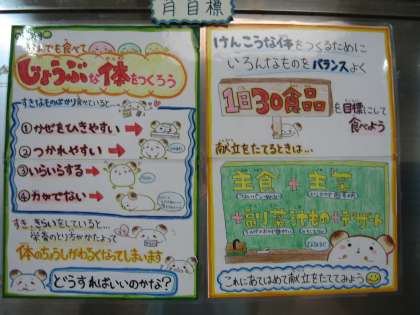 月目標
なんでも食べて
じょうぶな体をつくろう
すきなものばかり食べていると…
①かぜをひきやすい
②つかれやすい
③いらいらする
④力がでない
すききらいをしていると…
栄養のとり方がかたよって
体のちょうしがわるくなってしまいます
どうすればいいのかな？
けんこうな体をつくるために
いろんなものをバランスよく
1日30食品を目標にして
食べよう
献立をたてるときは…
主食+主菜
+副菜+汁もの+デザート
これにあてはめて献立をたててみよう